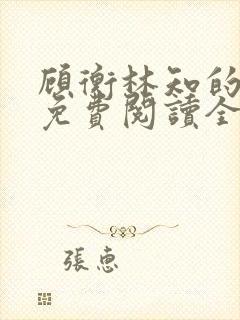 顾衡林知的
免費閱讀全
張惠